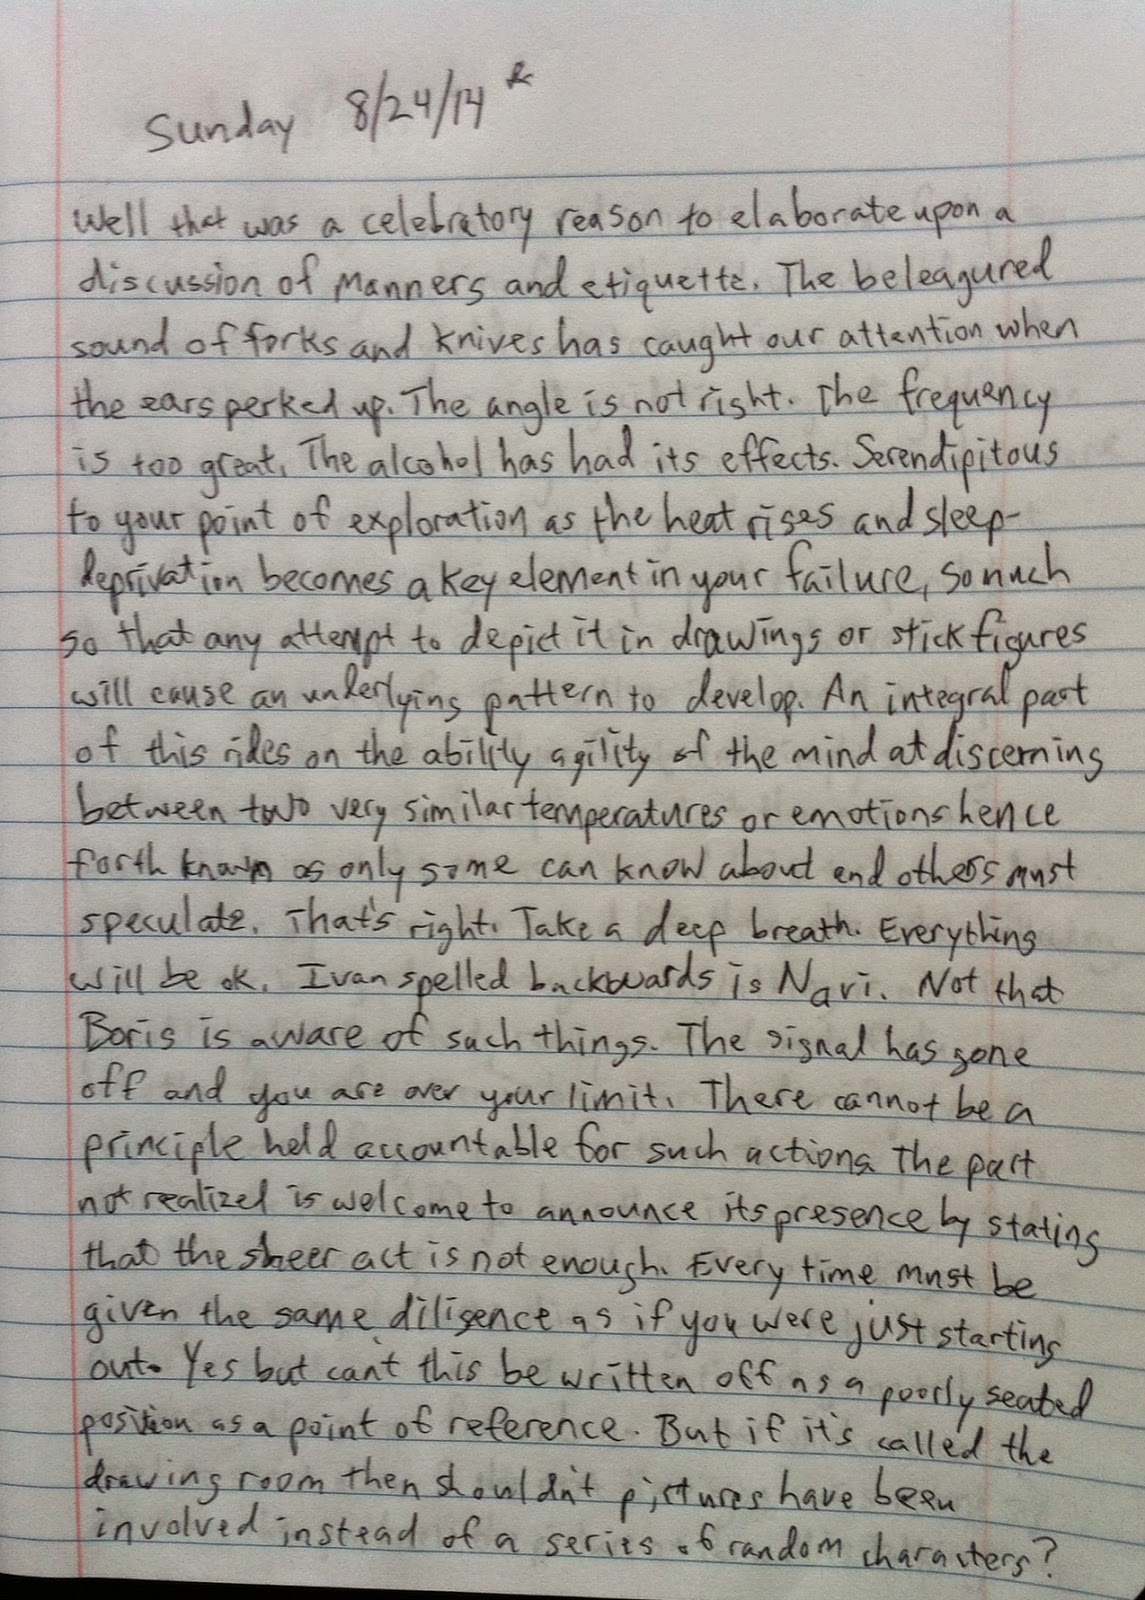 Sunday 8/24/14
Well that was a celebratory reason to elaborate upon a
discussion of manners and etiquette. The beleagured
sound of forks and knives has caught our attention when
the ears perked up. The angle is not right. The frequency
is too great. The alcohol has had its effects. Serendipitous
to your point of exploration as the heat rises and sleep-
deprivation becomes a key element in your failure, so much
so that any attempt to depict it in drawings or stick figures
will cause an underlying pattern to develop. An integral part
of this rides on the ability agility of the mind at discerning
between two very similar temperatures or emotions hence
forth known as only some can know about and others must
speculate. That's right. Take a deep breath. Everything
will be ok. Ivan spelled backwards is Navi. Not that
Boris is aware of such things. The signal has gone
off and you are over your limit. There cannot be a
principle held accountable for such actions. The part
not realized is welcome to announce its presence by stating
that the sheer act is not enough. Every time must be
given the same diligence as if you were just starting
out. Yes but can't this be written off as a poorly seated
position as a point of reference. But if it's called the
drawing room then shouldn't pictures have been
involved instead of a series of random characters?